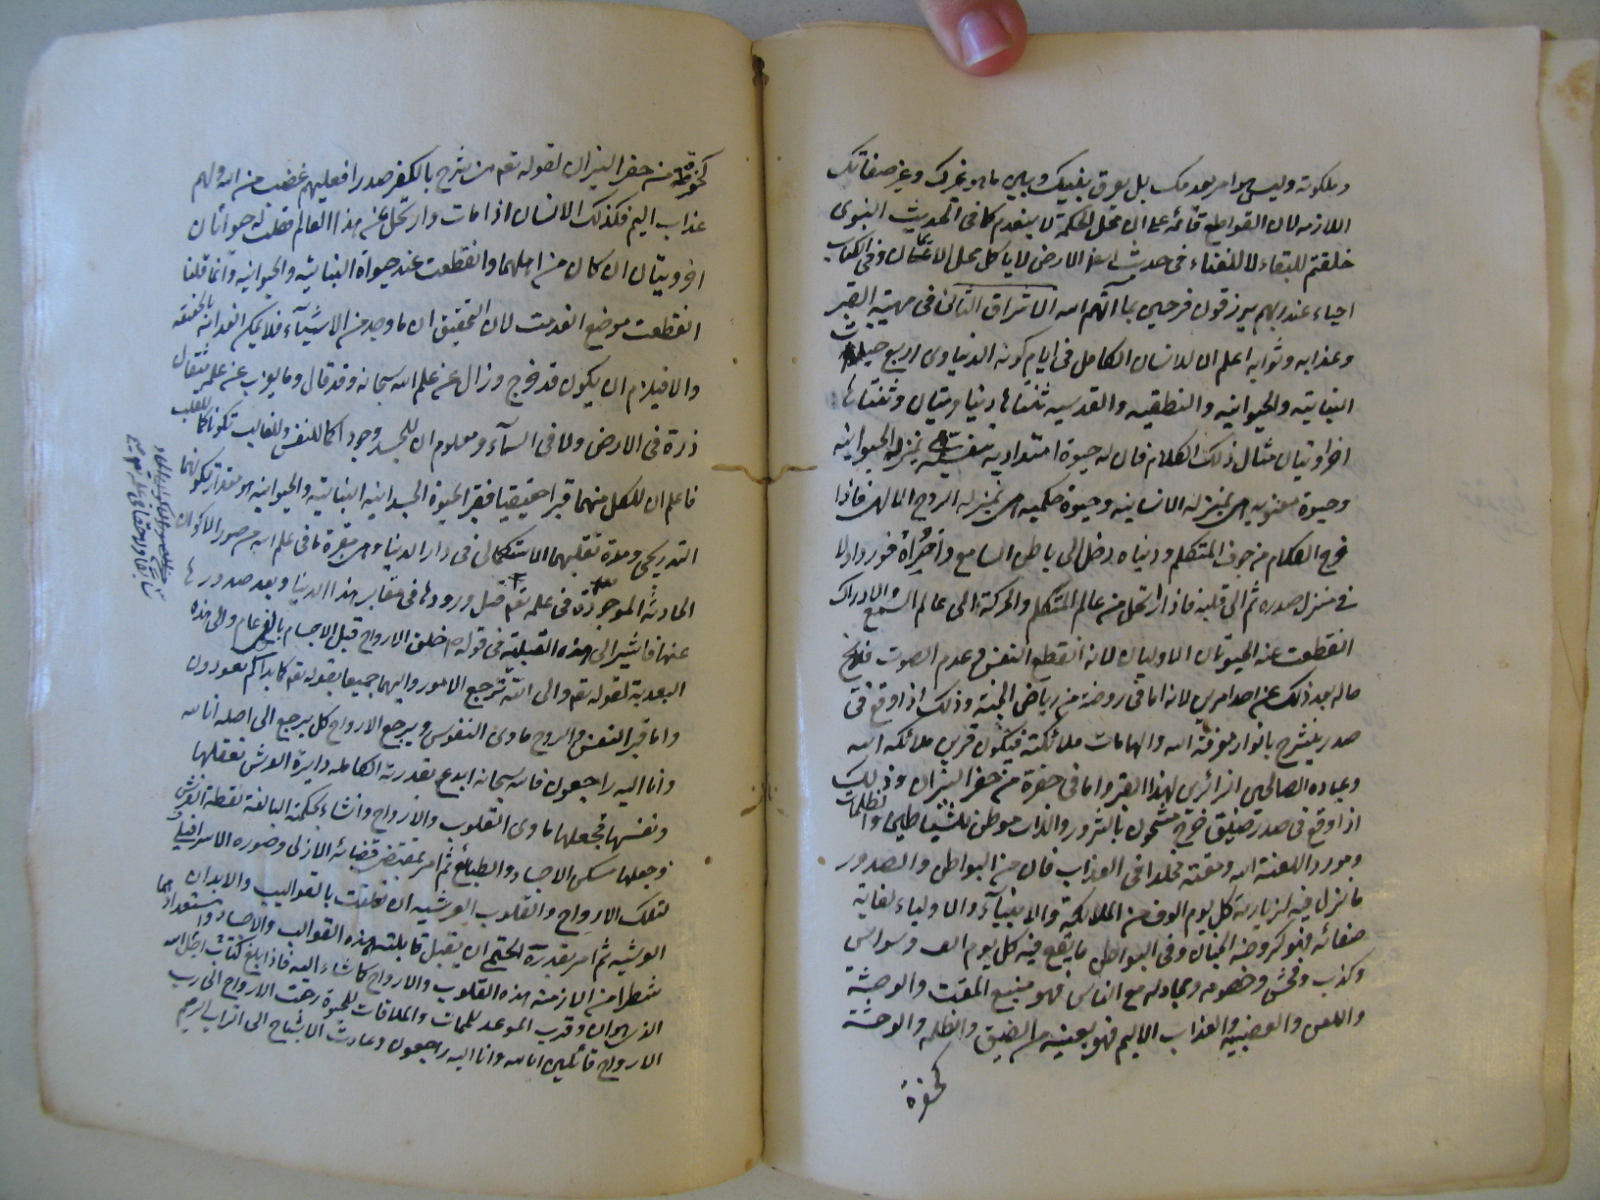 وملكوته وليس هو امر بعد منك بل يعرق بينك وبين ما هو غيرك وغير صفاتك
اللازمة لان القواطع قائمة على ان محل الحكمة لا ينعدم كما في الحديث النبوى
خلقتم للبقاء لا للفناء فى حديث اخر الارض لا ياكل محل الايمان وفى الكتاب
احياء عند ربهم يرزقون فرحين بما آتيهم الله الاشراق الثانى فى مهية القبر
وعذابه وثوابه اعلم ان للانسان الكامل فى ايام كونه الدنياوى اربع حيات
النباتية والحيوانية والنطقية والقدسية ثنتاها دنياويتان وثنتاها
اخراويتان مثال ذلك الكلام فان له حيوة امتدادية نفسية بمنزلة الحيوانية
وحيوة معنوية هى بمنزلة الانسانية وحيوة حكمية هى بمنزلة الروح الالهى فاذا
خرج الكلام من جوف المتكلم ودنياه دخل الى باطن السامع واخراه فورد اولا
فى منزل صدره ثم الى قلبه فاذا ارتحل من عالم المتكلم والحركة الى عالم السمع والادراك
انقطعت عنه الحيوتان الاوليان لانه انقطع النفس وعدم الصوت فلا يخ
حاله بعد ذلك عن احد امرين لانه اما فى روضة من رياض الجنة وذلك اذا وقع فى
صدر منشرح بانوار معرفة الله والهامات ملائكته فيكون قرين ملائكة الله
وعباده الصالحين الزائرين لهذا القبر واما فى حفرة من حفر النيران وذلك
اذا وقع فى صدر ضيق حرج مشحون بالشرور والذات موطن للشياطين والظلمات
ومورد اللعنة الله ومقته مخلدا فى العذاب فان من البواطن والصدور
ما ينزل فيه لزيارته كل يوم الوف من الملائكة والانبياء والاولياء لغاية
صفائه فهو كروضة الجنان وفى البواطن ما يقع فيه كل يوم الف وسواس
وكذب وفحش وخصومة ومجادلة مع الناس فهو منبع المقت والوحشة
واللعن والغضب والعذاب الاليم فهو بعينه من الضيق والظلمة والوحشة
كحفرة
كحفرة من حفر النيران لقوله تعم من شرح بالكفر صدرا فعليهم غضب من الله ولهم
عذاب اليم فكذلك الانسان اذا مات وارتحل عن هذا العالم فظلت له حيوتان
اخرويتان ان كان من اهلهما وانقطعت عنه حيواة النباتية والحيوانية وانما قلنا
انقطعت موضع انعدمت لان التحقيق ان ما وجد من الاشياء فلا يمكن انعدامه بالحقيقة
والا فيلزم ان يكون قد خرج وزال عن علم الله سبحانه وقد قال وما يعزب عن علمه مثقال
ذرة فى الارض ولا فى السماء ومعلوم ان للجسد وجودا كما للنفس وللقالب تكونا كما للقلب
فاعلم ان لكل منهما قبرا حقيقيا فقبر الحيوة الجسدانية النباتية والحيوانية هو مقدار تكونهما
التدريجى ومدة تقلبهما الاستكمالى فى دار الدنيا وهى مقبرة ما فى علم الله من صور الاكوان
الحادثة الموجودة فى علمه تعم قبل ورودها فى مقابر هذا الدنيا وبعد صدورها
عنها فاشير الى هذه القبلية فى قوله ص خلق الارواح قبل الاجسام بالفى عام والى هذه
البعدية لقوله تعم والى الله ترجع الامور واليهما جميعا بقوله تعم كما بداكم تعودون
واما قبر النفس والروح ماوى النفوس ويرجع الارواح كل يرجع الى اصله انا لله
وانا اليه راجعون فانه سبحانه ابدع بقدرته الكاملة دايرة العرش بعقلها
ونفسها فجعلها ماوى القلوب والارواح وانشاء بحكمته البالغة نقطة الفرش
وجعلها مسكن الاجساد والطبائع ثم امر بمقتضى قضائه الازلى وصوره الاسرافيلى
لتلك الارواح والقلوب العرشية ان تعلقت بالقوالب والابدان
الفرشية ثم امر بقدره الحتمى ان يقبل قابلية هذه القوالب والاجساد واستعدادها
شطرا من الازمنة هذه القلوب والارواح كما شاء اليه فاذا بلغ كتاب اجل الله
الذى هو ان وقرب الموعد للممات والملاقات للحيوة رجعت الارواح الى رب
الارواح قائلين انا لله وانا اليه راجعون وعادت الاشباح الى التراب الرميم